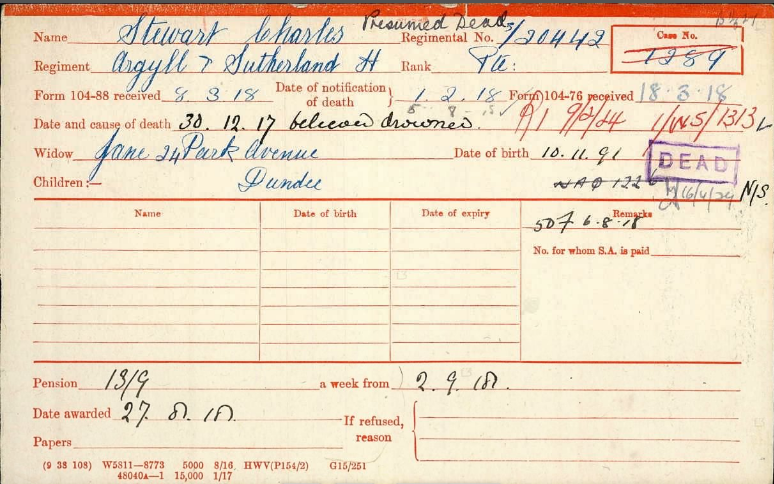 Presumed Dead
Name Stewart Charles Regimental No. S/20442 Case No. 1289
Regiment Argyll & Sutherland H Rank Pte:
Form 104-88 received 8 3.18 Date of notification of death 1.2.18 Form 104-76 received 18.3.18
5-8-18
Date and cause of death 30.12.17 believed drowned. R1 9/2/24 1/W5/1313
Widow Jane 24 Park Avenue Date of birth 10.11.91 DEAD
Children:— Dundee 16/4/29 N/S.
Name Date of birth Date of expiry Remarks
507 6.8.18
No. for whom S.A. is paid
Pension 13/9 a week from 2.9.18.
Date awarded 27.8.18. If refused, reason
Papers
(9 38 108) W5811—8773 5000 8/16 HWV(P154/2) G15/251
48040A—1 15,000 1/17